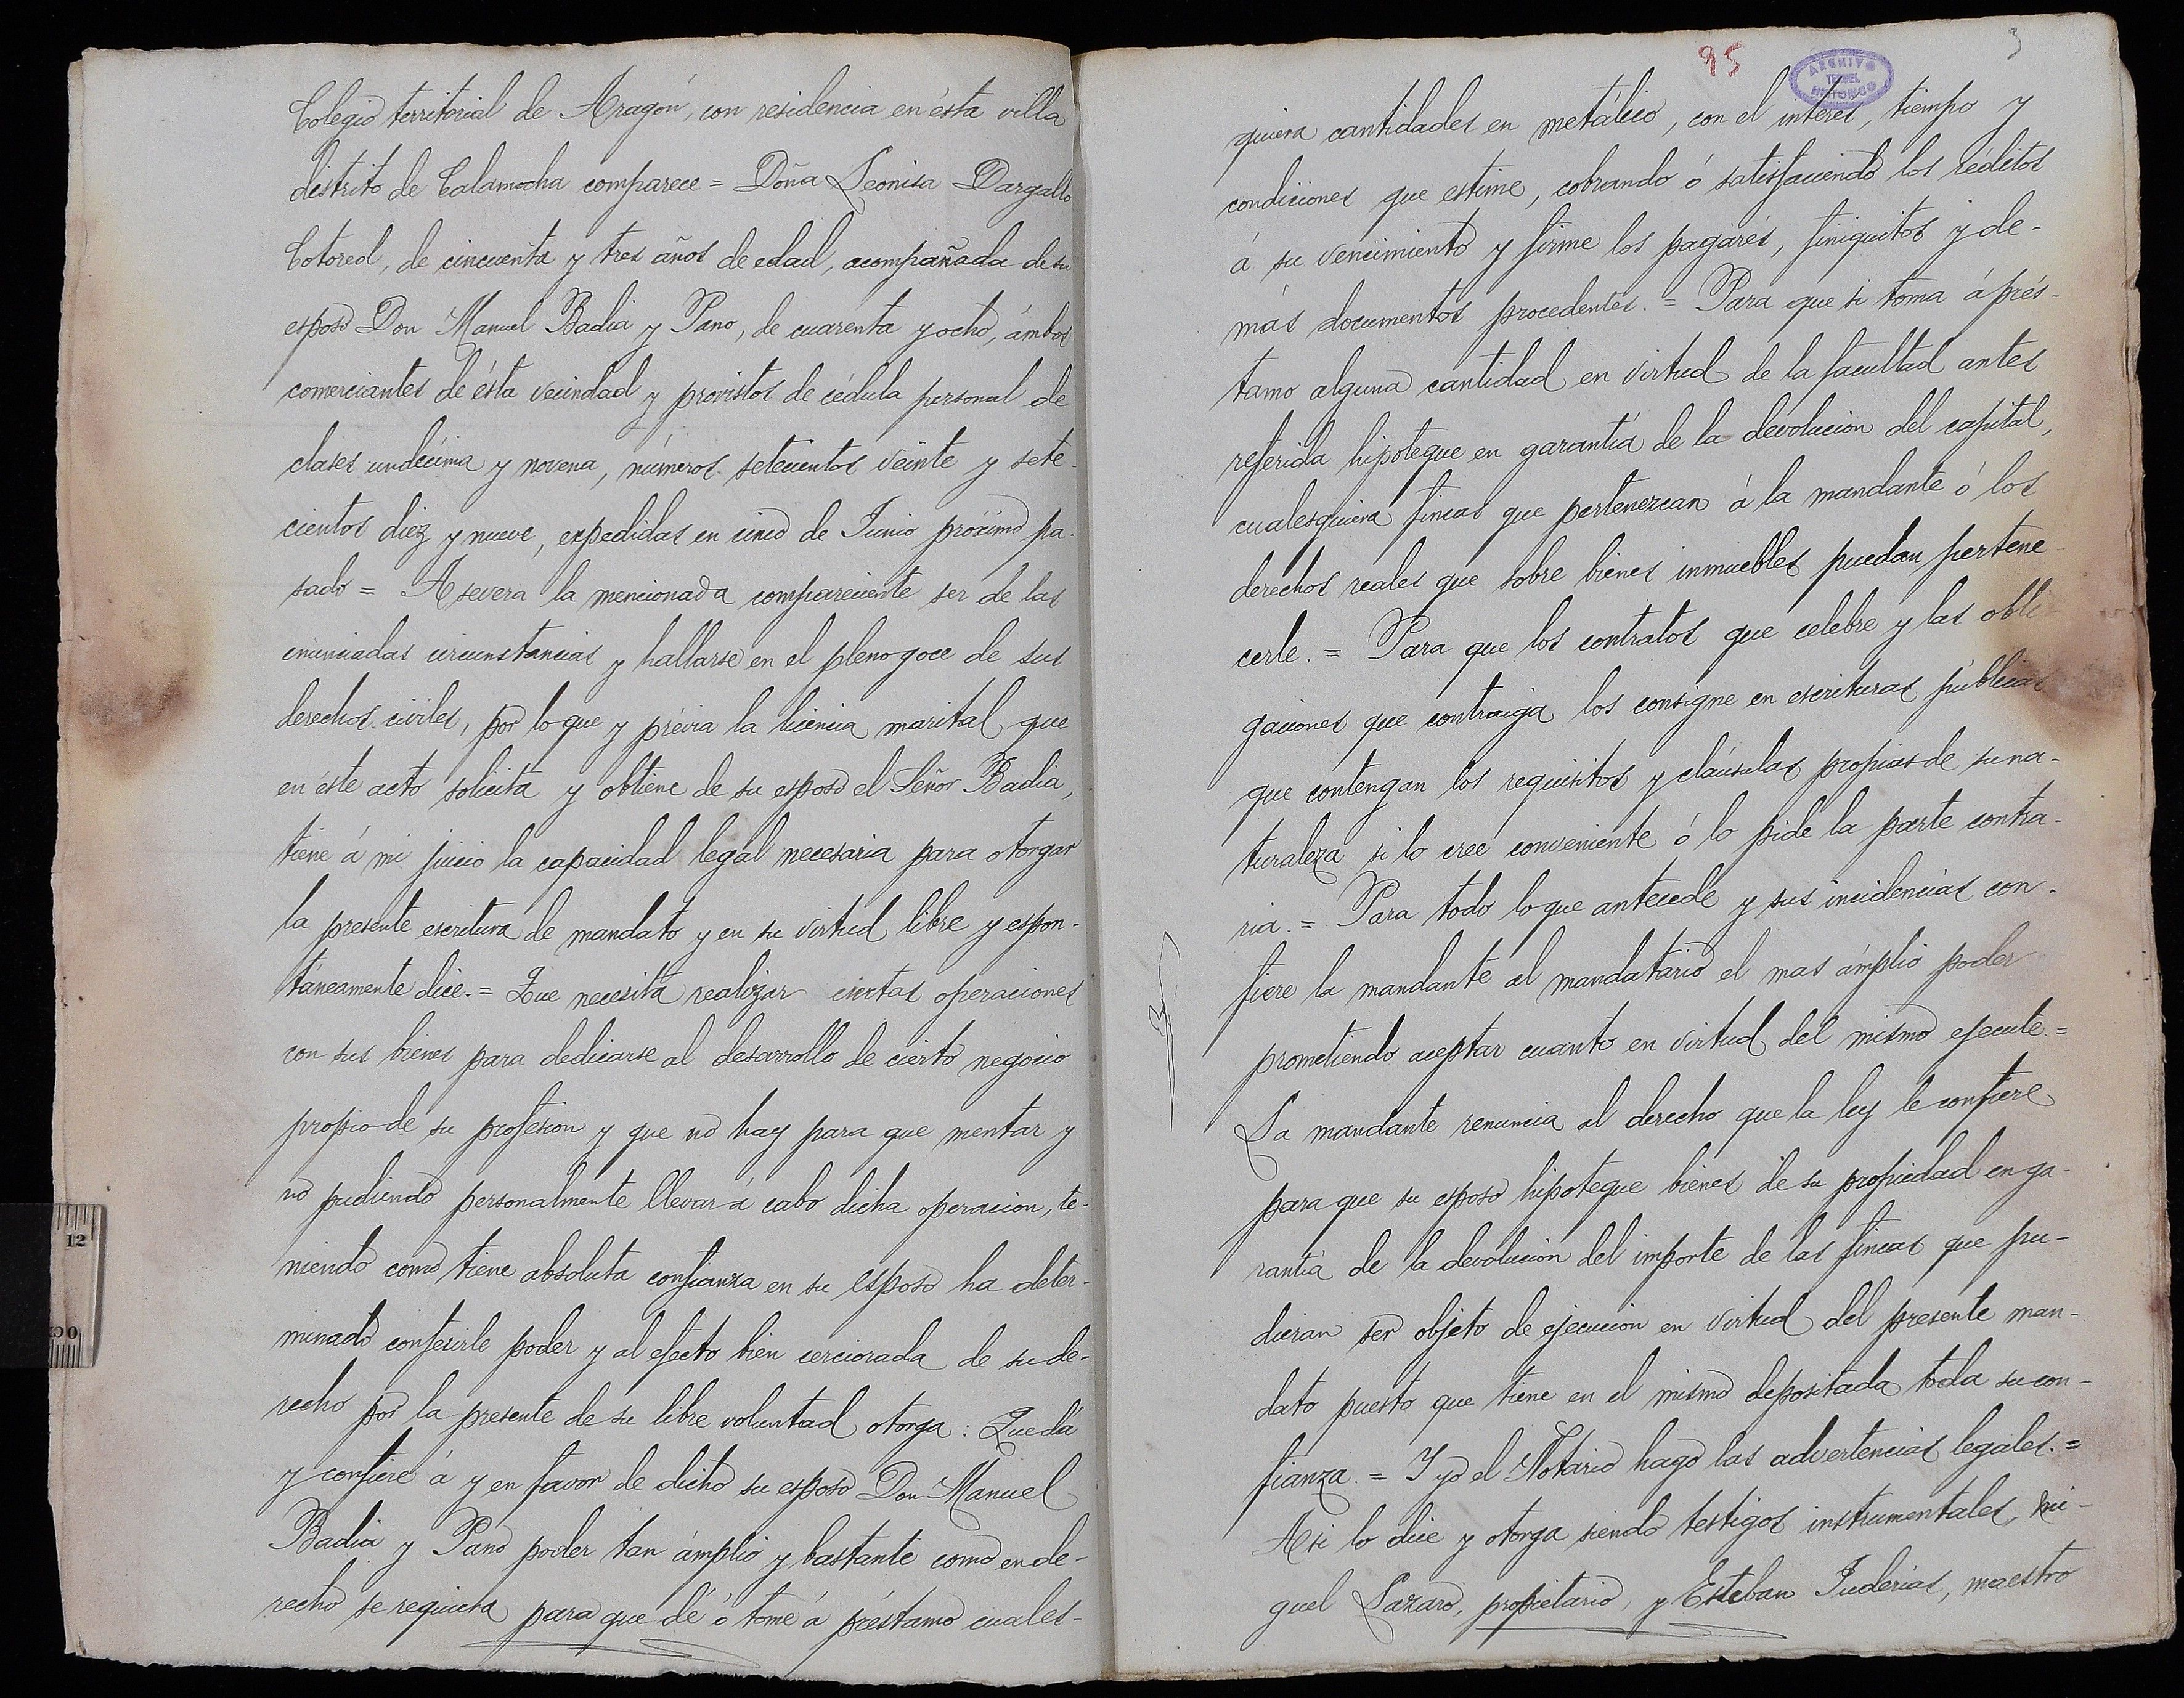 Colegio territorial de Aragón, con residencia en ésta villa
distrito de Calamocha comparece = Doña Leonisa Dargallo
Cotored, de cincuenta y tres años de edad, acompañada de su
esposo Don Manuel Badia y Pano, de cuarenta y ocho, ámbos
comerciantes de ésta vecindad y provistos de cédula personal de
clases undécima y novena, números setecientos veinte y sete-
cientos diez y nueve, expedidas en cinco de Junio próximo pa-
sado = Asevera la mencionada compareciente ser de las
enunciadas circunstancias y hallarse en el pleno goce de sus
derechos civiles, por lo que y prévia la licencia marital que
en éste acto solicita y obtiene de su esposo el Señor Badia,
tiene á mi juicio la capacidad legal necesaria para otorgar
la presente escritura de mandato y en su virtud libre y espon-
táneamente dice. = Que necesita realizar ciertas operaciones
con sus bienes para dedicarse al desarrollo de cierto negocio
propio de su profesion y que no hay para que mentar y
no pudiendo personalmente llevar á cabo dicha operacion, te-
niendo como tiene absoluta confianza en su esposo ha deter-
minado conferirle poder y al efecto bien cerciorada de su de-
recho por la presente de su libre voluntad otorga: Que dá
y confiere á y en favor de dicho su esposo Don Manuel
Badia y Pano poder tan ámplio y bastante como en de-
recho se requiera para que dé ó tome á préstamo cuales-
95
3
ARCHIVO
TERUEL
HISTORICO
quiera cantidades en metálico, con el interés, tiempo y
condiciones que estime, cobrando ó satisfaciendo los réditos
á su vencimiento y firme los pagarés, finiquitos y de-
más documentos procedentes. = Para que si toma á prés-
tamo alguna cantidad en virtud de la facultad antes
referida hipoteque en garantia de la devolucion del capital,
cualesquiera fincas que pertenezcan á la mandante ó los
derechos reales que sobre bienes inmuebles puedan pertene-
cerle. = Para que los contratos que celebre y las obli-
gaciones que contraiga los consigne en escrituras públicas
que contengan los requisitos y cláusulas propias de su na-
turaleza si lo cree conveniente ó lo pide la parte contra-
ria. = Para todo lo que antecede y sus incidencias con-
fiere la mandante al mandatario el mas ámplio poder
prometiendo aceptar cuanto en virtud del mismo ejecute. =
La mandante renuncia al derecho que la ley le confiere
para que su esposo hipoteque bienes de su propiedad en ga-
rantia de la devolucion del importe de las fincas que pu-
dieran ser objeto de ejecucion en virtud del presente man-
dato puesto que tiene en el mismo depositada toda su con-
fianza. = Y yo el Notario hago las advertencias legales. =
Asi lo dice y otorga siendo testigos instrumentales, Mi-
guel Lazaro, propietario, y Esteban Juderias, maestro